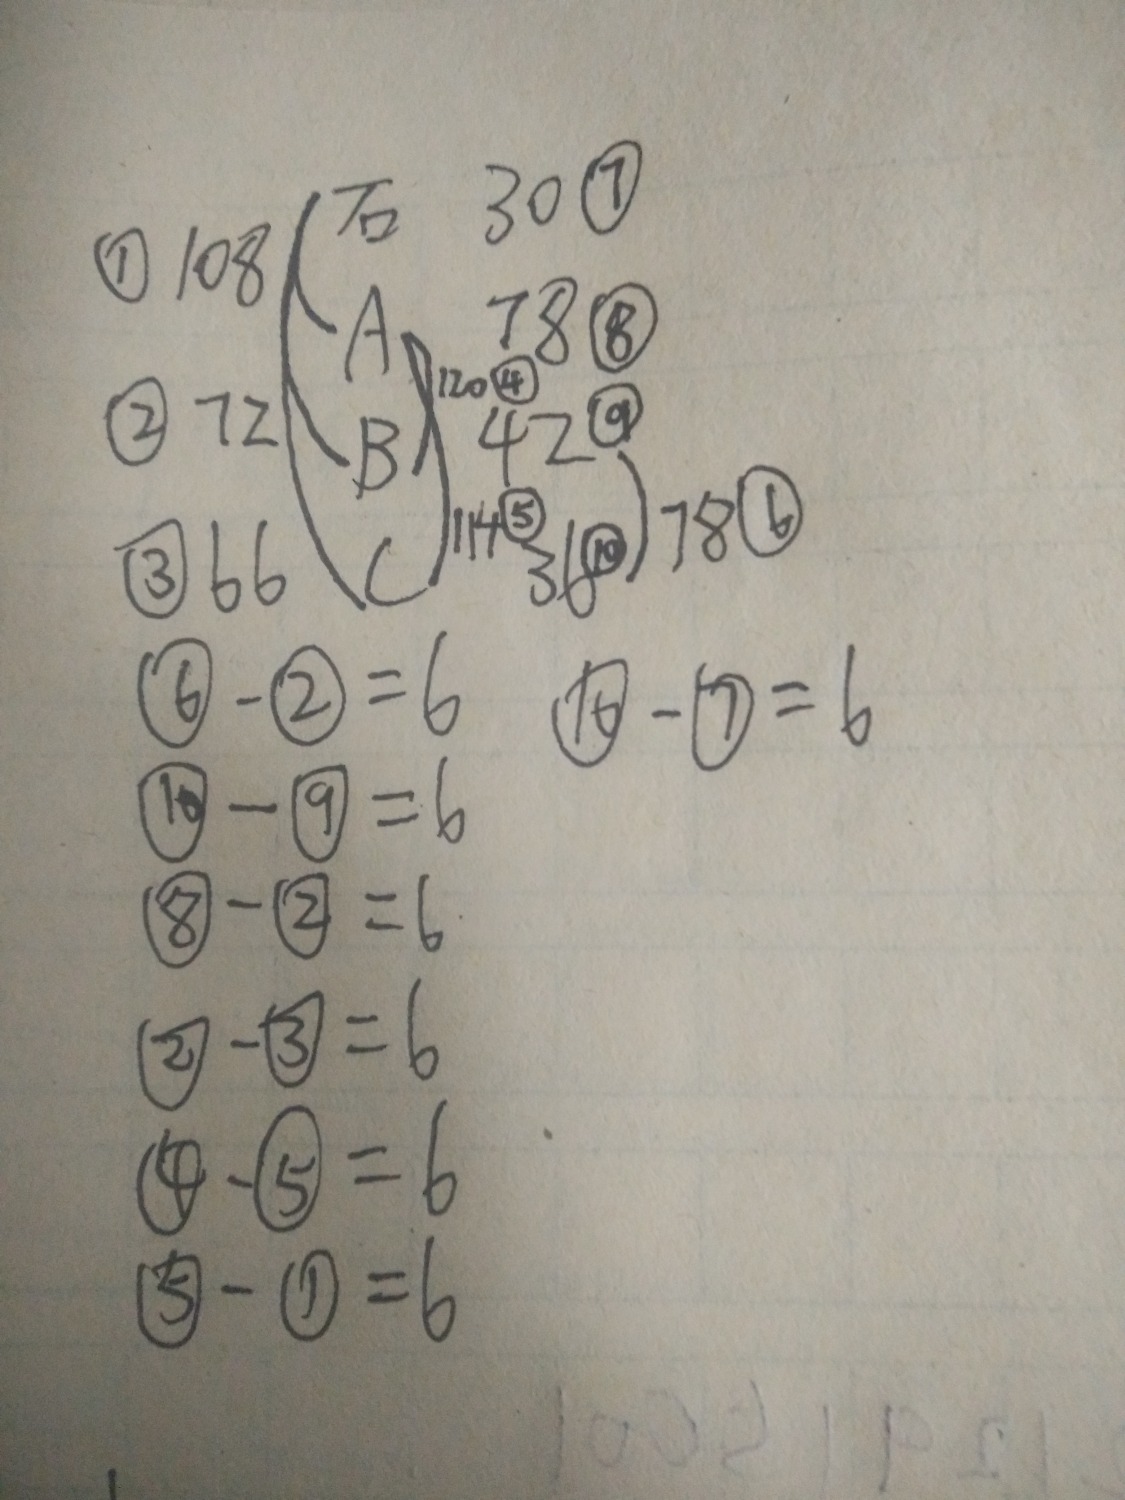 石 30 ⑦
① 108
A 78 ⑧
120 ④
② 72 B 42 ⑨
114 ⑤ 78 ⑥
③ 66 C 36 ⑩
⑥ - ② = 6 ⑩ - ⑦ = 6
⑩ - ⑨ = 6
⑧ - ② = 6
② - ③ = 6
④ - ⑤ = 6
⑤ - ① = 6